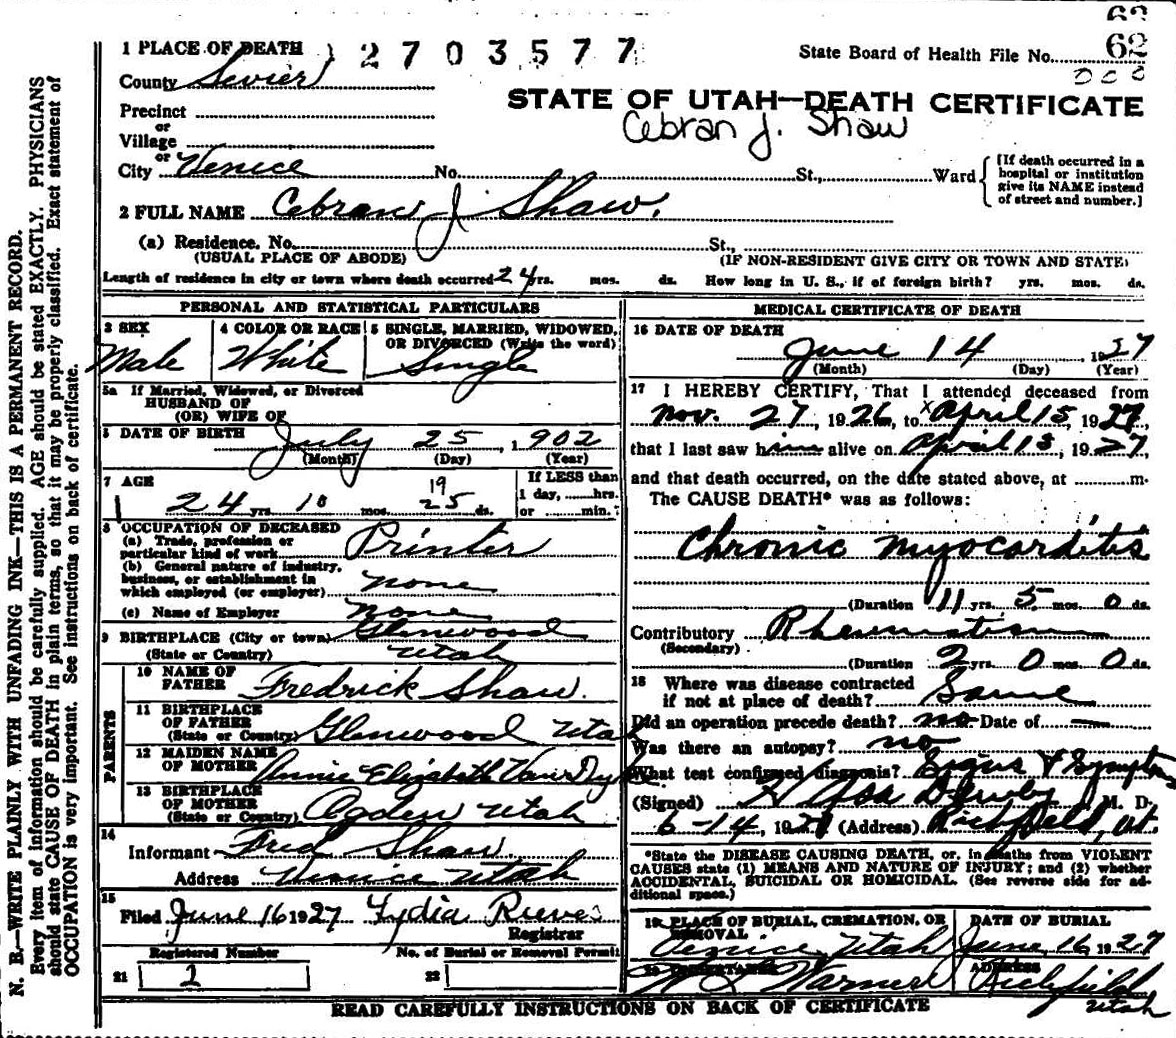 62
1 PLACE OF DEATH 2 7 0 3 5 7 7 State Board of Health File No. 62
County Sevier 000
STATE OF UTAH—DEATH CERTIFICATE
Precinct
Cebran J. Shaw
or
Village
or
City Venice No. St., Ward
[If death occurred in a hospital or institution give its NAME instead of street and number.]
2 FULL NAME Cebran J. Shaw.
(a) Residence. No. St.,
(USUAL PLACE OF ABODE) (IF NON-RESIDENT GIVE CITY OR TOWN AND STATE)
Length of residence in city or town where death occurred 24 yrs. mos. ds. How long in U. S., if of foreign birth? yrs. mos. ds.
PERSONAL AND STATISTICAL PARTICULARS
3 SEX
Male
4 COLOR OR RACE
White
5 SINGLE, MARRIED, WIDOWED,
OR DIVORCED (Write the word)
Single
5a If Married, Widowed, or Divorced
HUSBAND OF
(OR) WIFE OF
DATE OF BIRTH July 25, 1902
(Month) (Day) (Year)
7 AGE
24 yrs. 10 mos. 19 25 ds.
If LESS than
1 day, hrs.
or min.
8 OCCUPATION OF DECEASED
(a) Trade, profession or
particular kind of work Printer
(b) General nature of industry,
business, or establishment in
which employed (or employer) none
(c) Name of Employer none
9 BIRTHPLACE (City or town) Glenwood
(State or Country) Utah
PARENTS
10 NAME OF
FATHER Fredrick Shaw.
11 BIRTHPLACE
OF FATHER
(State or Country) Glenwood Utah
12 MAIDEN NAME
OF MOTHER Annie Elizabeth
13 BIRTHPLACE
OF MOTHER
(State or Country) Ogden Utah
14
Informant Fred Shaw.
Address Venice Utah
15
Filed June 16 1927 Lydia Reeves
Registrar
Registered Number No. of Burial or Removal Permit
21 1 22
MEDICAL CERTIFICATE OF DEATH
16 DATE OF DEATH
June 14 1927
(Month) (Day) (Year)
17 I HEREBY CERTIFY, That I attended deceased from
Nov. 27, 1926, to x April 15, 1927,
that I last saw him alive on April 13, 1927,
and that death occurred, on the date stated above, at m.
The CAUSE DEATH* was as follows:
Chronic myocarditis
(Duration 11 yrs. 5 mos. 0 ds.
Contributory Rheumatism
(Secondary)
(Duration 2 yrs. 0 mos. 0 ds.
18 Where was disease contracted
if not at place of death? Same
Did an operation precede death? no Date of —
Was there an autopsy? no
What test confirmed diagnosis? Signs & Symptoms
(Signed) Asa Dewby, M. D.
6-14, 1927 (Address) Richfield, Ut.
*State the DISEASE CAUSING DEATH, or, in deaths from VIOLENT
CAUSES state (1) MEANS AND NATURE OF INJURY; and (2) whether
ACCIDENTAL, SUICIDAL OR HOMICIDAL. (See reverse side for ad-
ditional space.)
19 PLACE OF BURIAL, CREMATION, OR
REMOVAL
Venice, Utah
DATE OF BURIAL
June 16 1927
20 UNDERTAKER
Warnock
ADDRESS
Richfield
Utah
READ CAREFULLY INSTRUCTIONS ON BACK OF CERTIFICATE
N. B.—WRITE PLAINLY WITH UNFADING INK—THIS IS A PERMANENT RECORD.
Every item of information should be carefully supplied. AGE should be stated EXACTLY. PHYSICIANS
should state CAUSE OF DEATH in plain terms, so that it may be properly classified. Exact statement of
OCCUPATION is very important. See instructions on back of certificate.